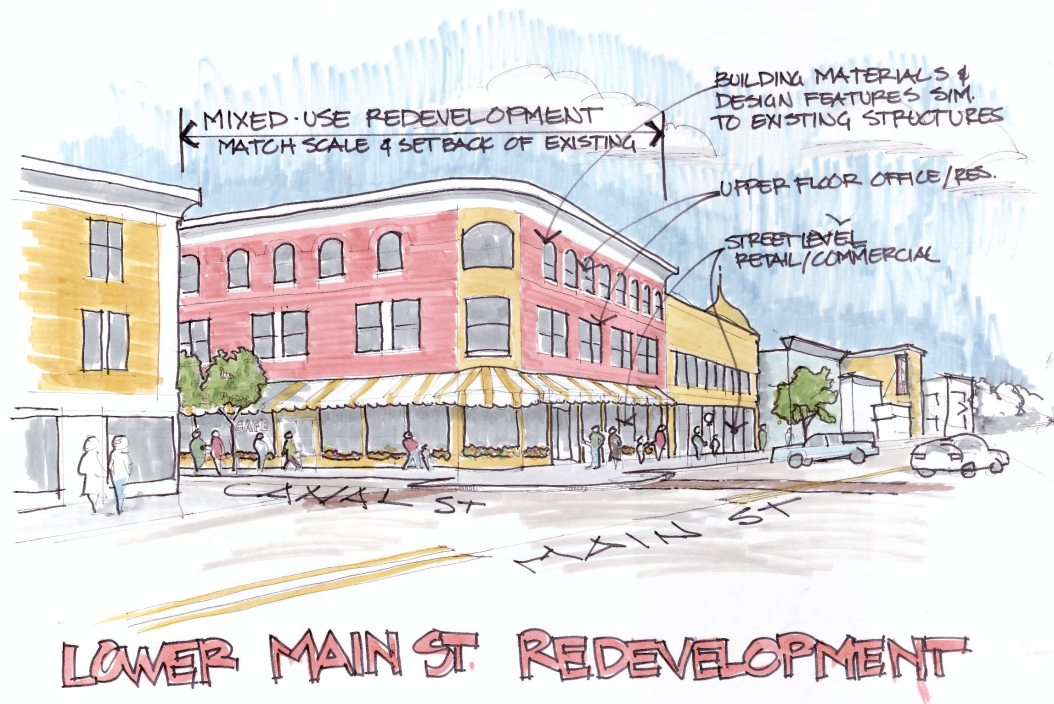 MIXED-USE REDEVELOPMENT
MATCH SCALE & SETBACK OF EXISTING
BUILDING MATERIALS &
DESIGN FEATURES SIM.
TO EXISTING STRUCTURES
UPPER FLOOR OFFICE/RES.
STREET LEVEL
RETAIL/COMMERCIAL
CAFE
CANAL ST
MAIN ST
LOWER MAIN ST. REDEVELOPMENT